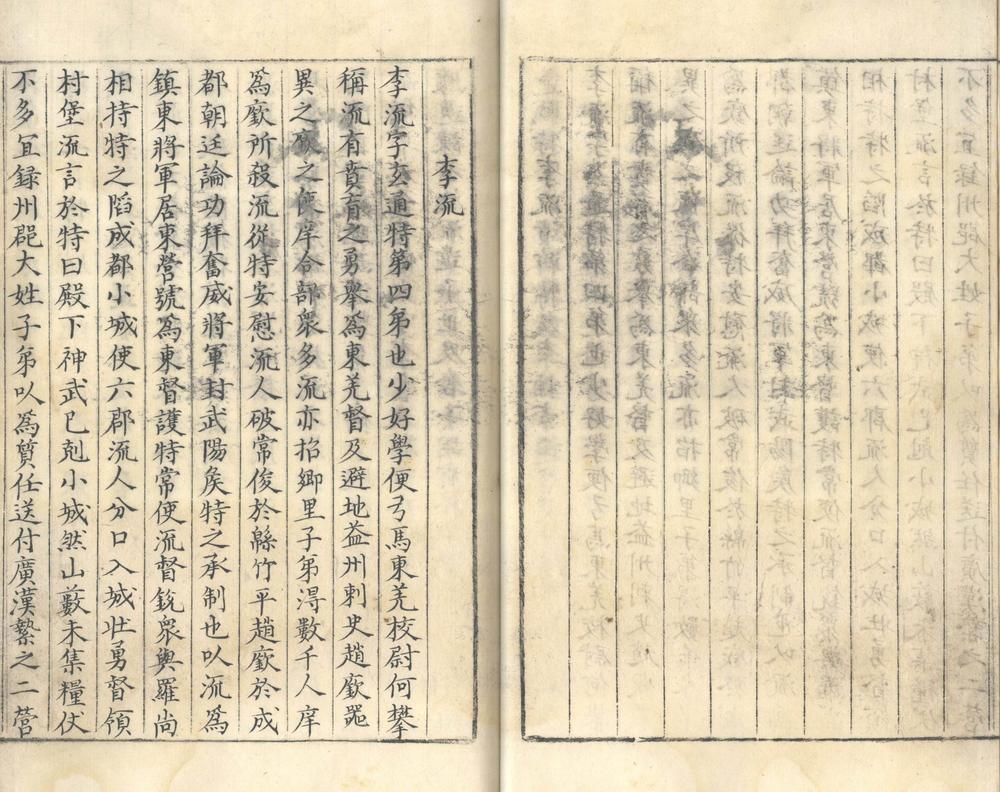 李流
李流字玄通特第四弟也少好學便弓馬東羌校尉何攀
稱流有賁育之勇舉為東羌督及避地益州刺史趙廞器
異之廞之使庠合部衆多流亦招鄉里子弟得數千人庠
為廞所殺流從特安慰流人破常俊於緜竹平趙廞於成
都朝廷論功拜奮威將軍封武陽矦特之承制也以流為
鎮東將軍居東營號為東督護特常使流督銳衆與羅尚
相持特之陷成都小城使六郡流人分口入城壯勇督領
村堡流言於特曰殿下神武已剋小城然山藪未集糧仗
不多宜録州郡大姓子弟以為質任送付廣漢縶之二營